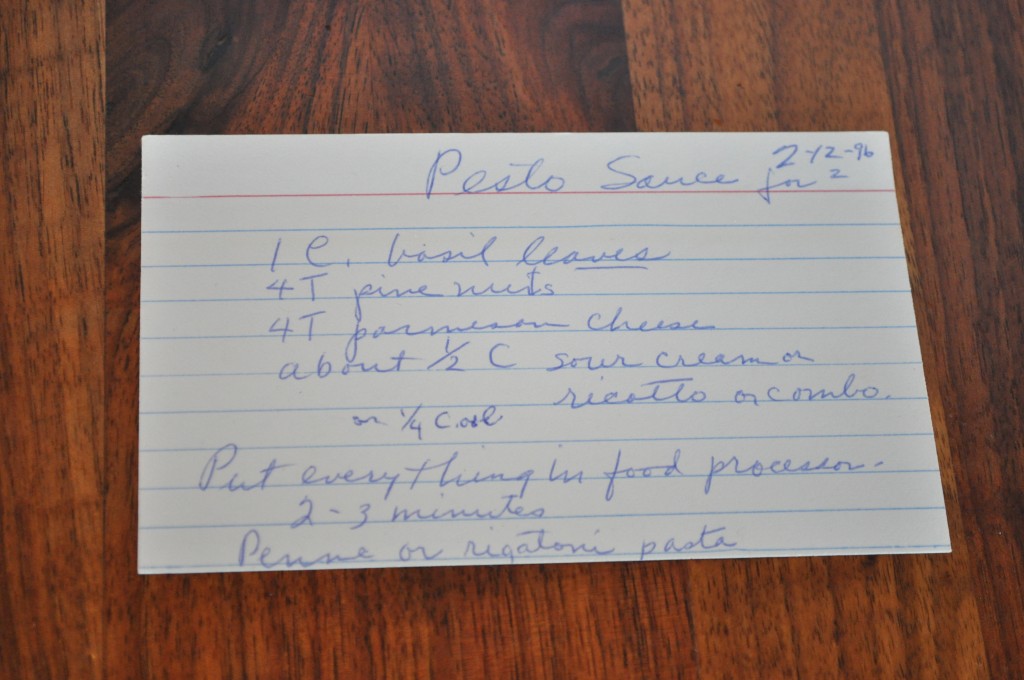 Pesto Sauce 2-12-96
for 2
1 C. basil leaves
4T pine nuts
4T parmesan cheese
about 1/2 C sour cream or
ricotto or combo.
or 1/4 C. oil
Put everything in food processor.
2-3 minutes
Penne or rigatoni pasta